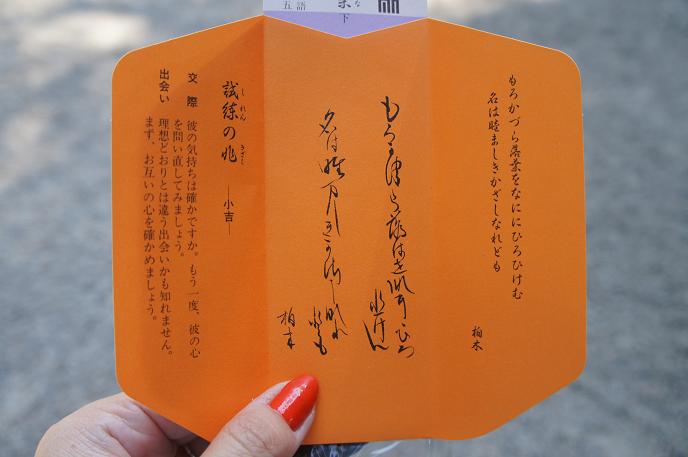 な
下
語
五
もろかづら落葉をなににひろひけむ
名は睦ましきかざしなれども
柏木
柏木
しれん きざし
試練の兆 ―小吉―
交際 彼の気持ちは確かですか。もう一度、彼の心
を問い直してみましょう。
出会い 理想どおりとは違う出会いかも知れません。
まず、お互いの心を確かめましょう。